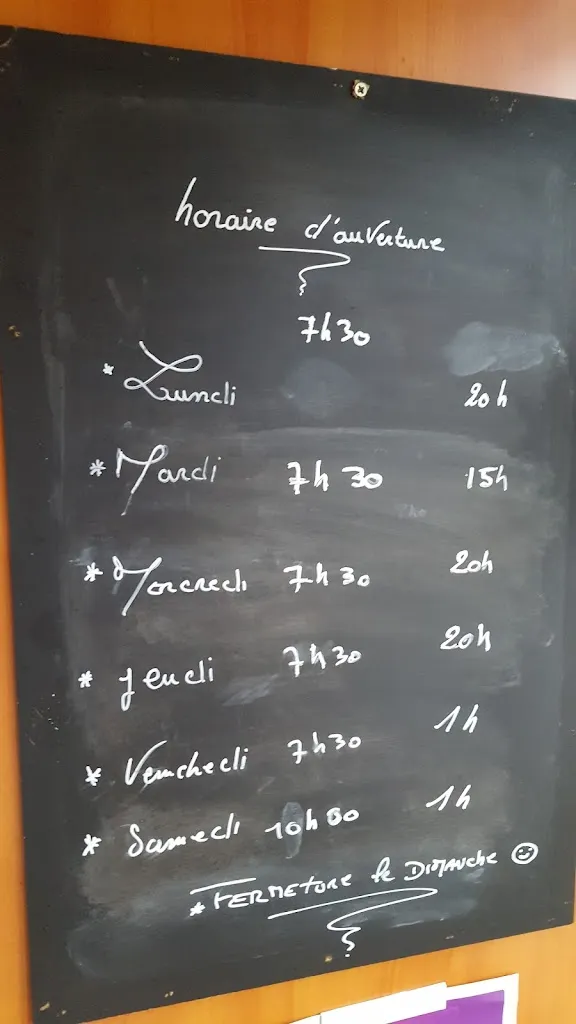 horaire d'auverture
7h30
* Lundi 20h
* Mardi 7h30 15h
* Mercredi 7h30 20h
* Jeudi 7h30 20h
* Vendredi 7h30 1h
* Samedi 10h00 1h
* FERMETURE le DIMANCHE